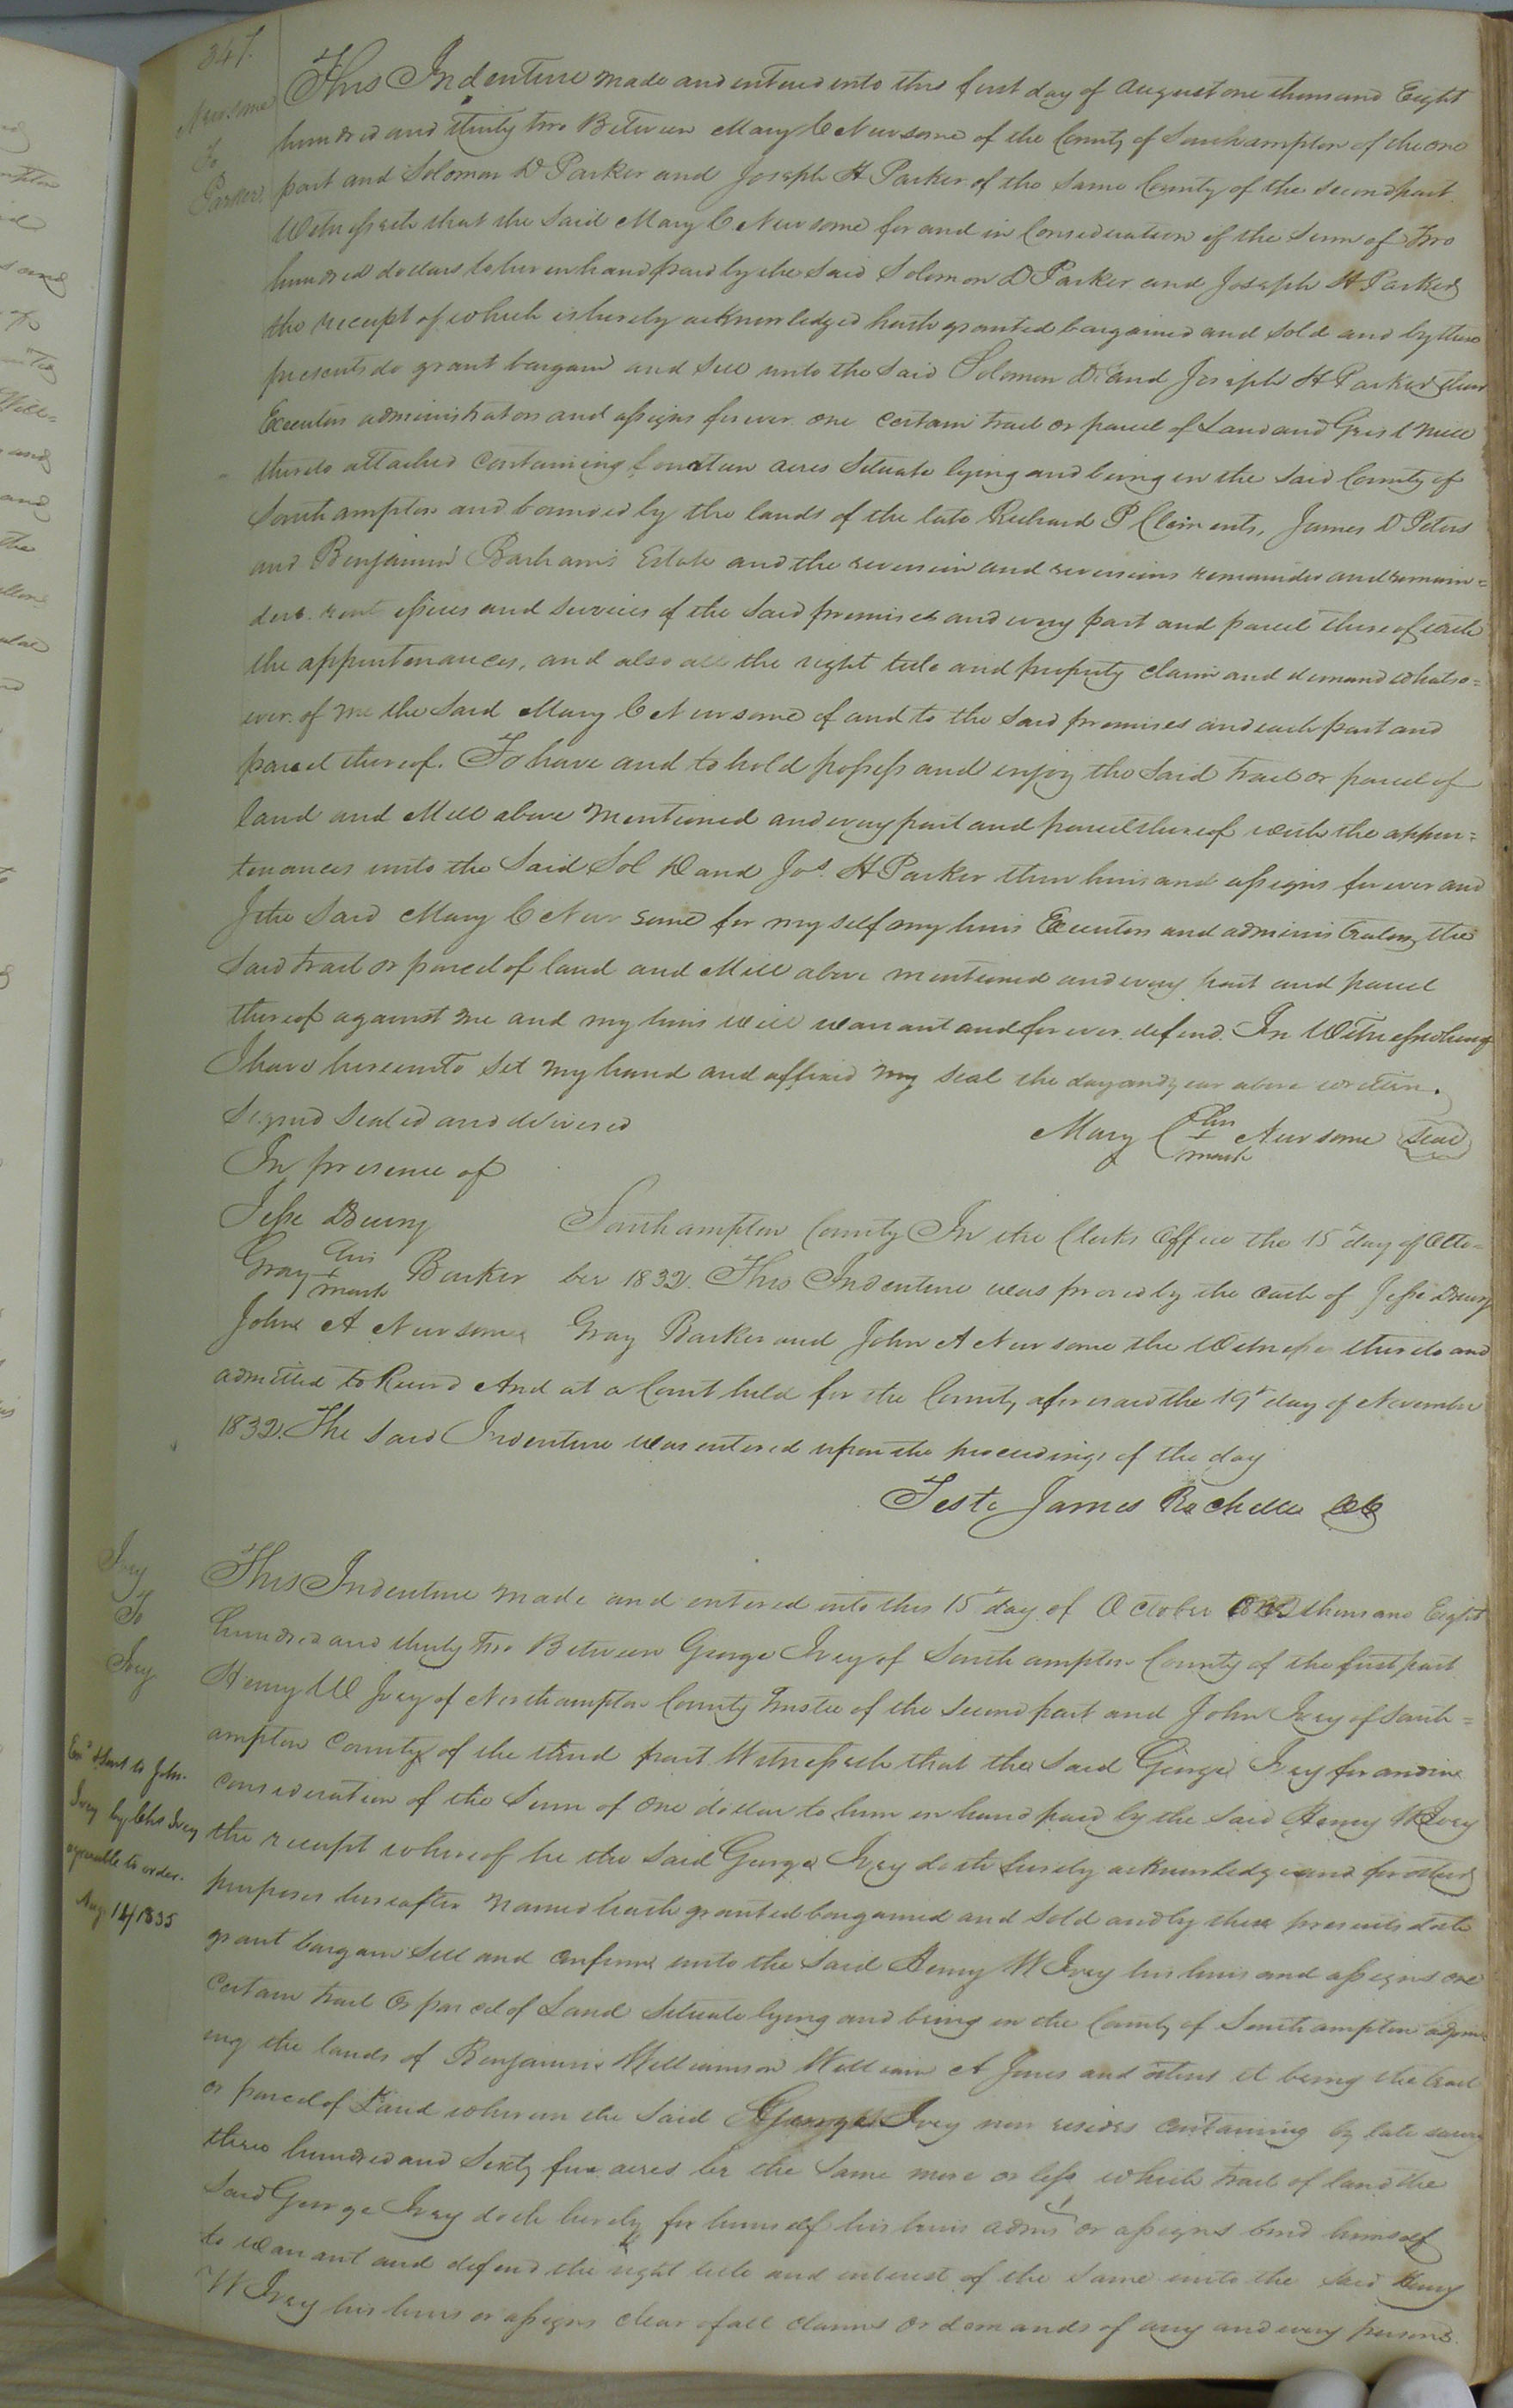 347.
Newsome
To
Parkers
This Indenture made and entered into this first day of August one thousand Eight
hundred and thirty two Between Mary C Newsome of the County of Southampton of the one
part and Solomon D Parker and Joseph H Parker of the same County of the second part
Witnesseth that the said Mary C Newsome for and in Consideration of the sum of Two
hundred dollars to her in hand paid by the said Solomon D Parker and Joseph H Parker
the receipt of which is hereby acknowledged hath granted bargained and sold and by these
presents do grant bargain and sell unto the said Solomon D and Joseph H Parker their
Executors administrators and assigns forever one certain tract or parcel of Land and Grist Mill
thereto attached Containing fourteen acres Situate lying and being in the said County of
Southampton and bounded by the lands of the late Richard P Clements, James D Peters
and Benjamin Barham's Estate and the reversion and reversions remainder and remain=
ders rents issues and services of the said premises and every part and parcel thereof with
the appurtenances, and also all the right title and property claim and demand whatso=
ever of me the said Mary C Newsome of and to the said premises and each part and
parcel thereof. To have and to hold possess and enjoy the said tract or parcel of
land and Mill above mentioned and every part and parcel thereof with the appur=
tenances unto the said Sol D and Jos. H Parker their heirs and assigns forever and
I the said Mary C Newsome for myself my heirs Executors and administrators the
said tract or parcel of land and Mill above mentioned and every part and parcel
thereof against me and my heirs will warrant and forever defend. In Witness whereof
I have hereunto set my hand and affixed my seal the day and year above written.
Signed Sealed and delivered
In presence of
Mary C her + mark Newsome Seal
Jesse Drewry
Gray his + mark Barker
John A Newsome
Southampton County In the Clerks Office the 15th day of Octo=
ber 1832. This Indenture was proved by the oath of Jesse Drewry
Gray Barker and John A Newsome the Witnesses thereto and
admitted to Record And at a Court held for the County aforesaid the 19th day of November
1832. The said Indenture was entered upon the proceedings of the day
Teste James Rochelle CC
Ivey
To
Ivey
Exd. & sent to John
Ivey by Chs Ivey
agreeable to order.
Aug. 14 1835
This Indenture made and entered into this 15th day of October one thousand Eight
hundred and thirty two Between George Ivey of Southampton County of the first part
Henry W Ivey of Northampton County Trustee of the second part and John Ivey of South=
ampton County of the third part Witnesseth that the said George Ivey for and in
consideration of the sum of one dollar to him in hand paid by the said Henry W Ivey
the receipt whereof he the said George Ivey doth hereby acknowledge and for other
purposes hereafter named hath granted bargained and sold and by these presents doth
grant bargain sell and confirm unto the said Henry W Ivey his heirs and assigns one
certain tract or parcel of Land situate lying and being in the County of Southampton adjoin
ing the lands of Benjamin Williamson William A Jones and others it being the tract
or parcel of Land whereon the said George Ivey now resides containing by late survey
three hundred and sixty five acres be the same more or less which tract of land the
said George Ivey doth hereby for himself his heirs admrs or assigns bind himself
to warrant and defend the right title and interest of the same unto the said Henry
W Ivey his heirs or assigns clear of all claims or demands of any and every persons